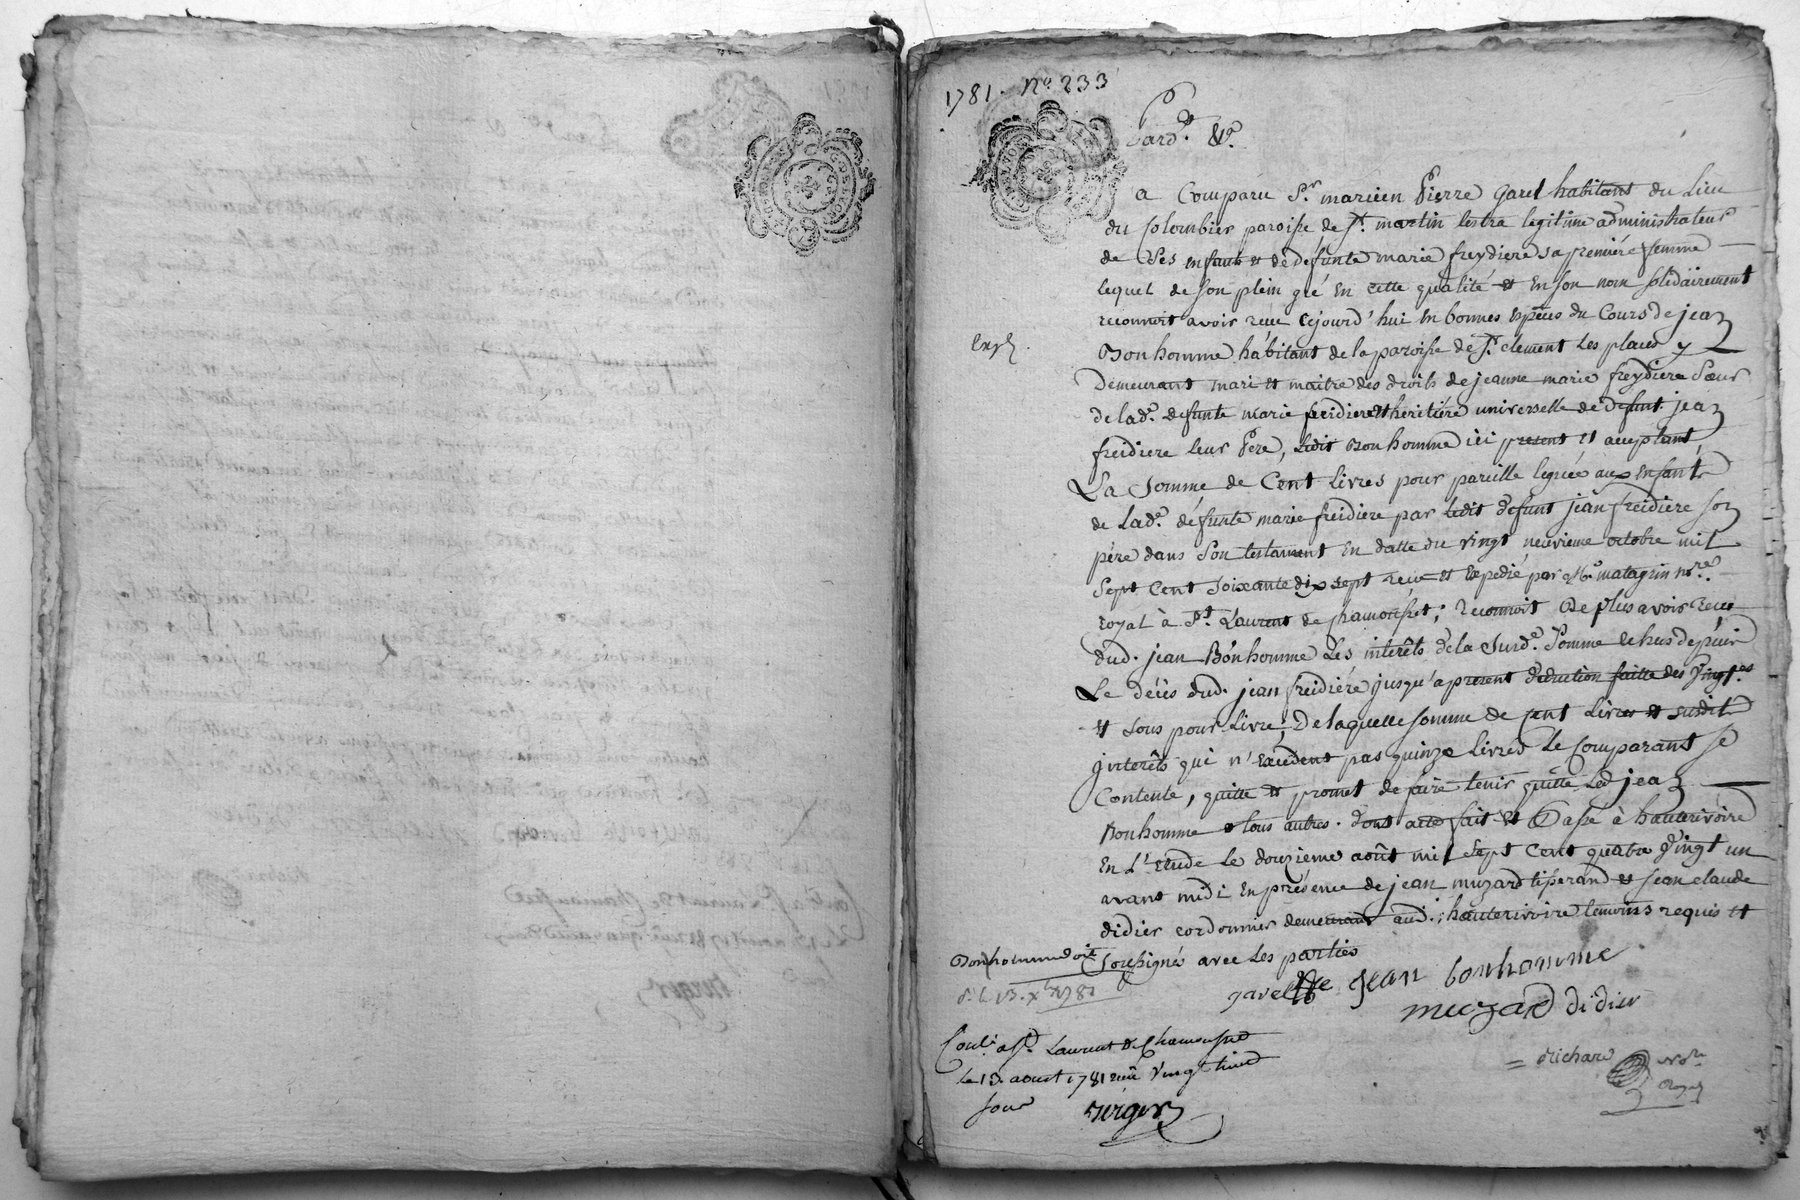 1781. No. 233
Pard.t &c.
a Comparu Sr. marcien Pierre garel habitant du Lieu
du Colombier paroisse de St. martin lestra legitime administrateur
de Ses enfants et de défunte marie freydiere sa premiére femme
lequel de son plein gré En cette qualité et En son nom solidairement
reconnoit avoir recu cejourd'hui en bonnes Espéces du Cours de jean
Bonhomme habitant de la paroisse de St. clement les places y
Demeurant mari et maitre des droits de jeanne marie freydiere Sœur
de lade. defunte marie freidiere et héritiére universelle de defunt jean
freidiere leur Pere, ledit Bonhomme ici present et acceptant
La Somme de Cent livres pour pareille leguée aux enfants
de Lade. défunte marie freidiere par ledit défunt jean freidiere son
pére dans Son testament en datte du vingt neuvieme octobre mil
Sept Cent soixante dix sept recu et Expedie par Me. matagrin nre.
royal à St. Laurent de chamousset; reconnoit De plus avoir recu
dud. jean Bonhomme Les interêts de la Surde. Somme echus depuis
Le décés dud. jean freidiére jusqu'a present déduction faitte des Vingtes
et sous pour livre, De laquelle somme de cent livres et susdits
interêts qui n'excédent pas quinze livres Le Comparant se
Contente, quitte et promet de faire tenir quitte Led. jean
Bonhomme et tous autres. dont acte fait et Passe à hauterivoire
en L'etude le douzieme août mil Sept Cent quatre Vingt un
avant midi En présence de jean muzard tisserand et jean claude
didier cordonnier demeurant aud. hauterivoire temoins requis et
Soussignés avec Les parties
Exp.
Bonhomme doit
garel jean bonhomme
muzard didier
Conl. a St. Laurent de Chamousset
le 13. aoust 1781 recu Vingt huit
sous
Verger
Richard Nore.
Royal